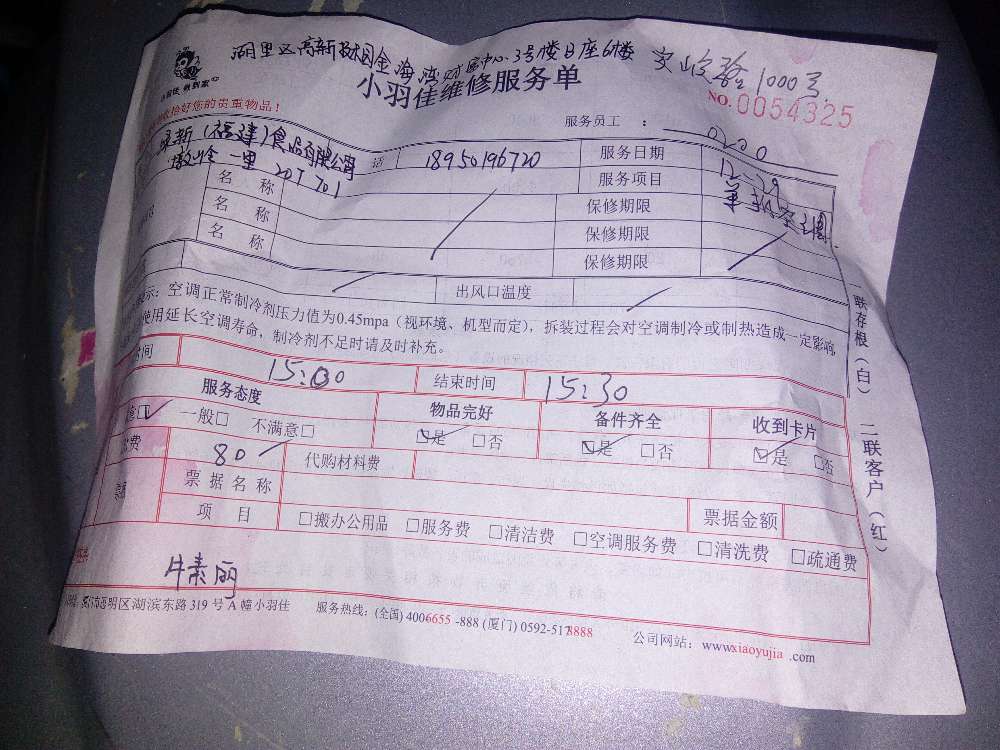 湖里区高新 园金海湾财富中心3号楼B座6楼
1000
小羽佳 帮到家
小羽佳维修服务单
NO.0054325
收拾好您的贵重物品！
服务员工：
020
新（福建）食品有限公司
一里 207 701
话 18950196720
服务日期 12-29
服务项目 单 空调
名 称 保修期限
名 称 保修期限
名 称 保修期限
出风口温度
示：空调正常制冷剂压力值为0.45mpa（视环境、机型而定），拆装过程会对空调制冷或制热造成一定影响
使用延长空调寿命，制冷剂不足时请及时补充。
时间 15:00 结束时间 15:30
服务态度 物品完好 备件齐全 收到卡片
意☑ 一般□ 不满意□ ☑是 □否 ☑是 □否 ☑是 □否
费 80 代购材料费
票据 票据名称 票据金额
项 目 □搬办公用品 □服务费 □清洁费 □空调服务费 □清洗费 □疏通费
牛素丽
思明区湖滨东路319号A幢小羽佳 服务热线：(全国) 4006655-888 (厦门) 0592-5178888 公司网站：www.xiaoyujia.com
一联存根（白） 二联客户（红）